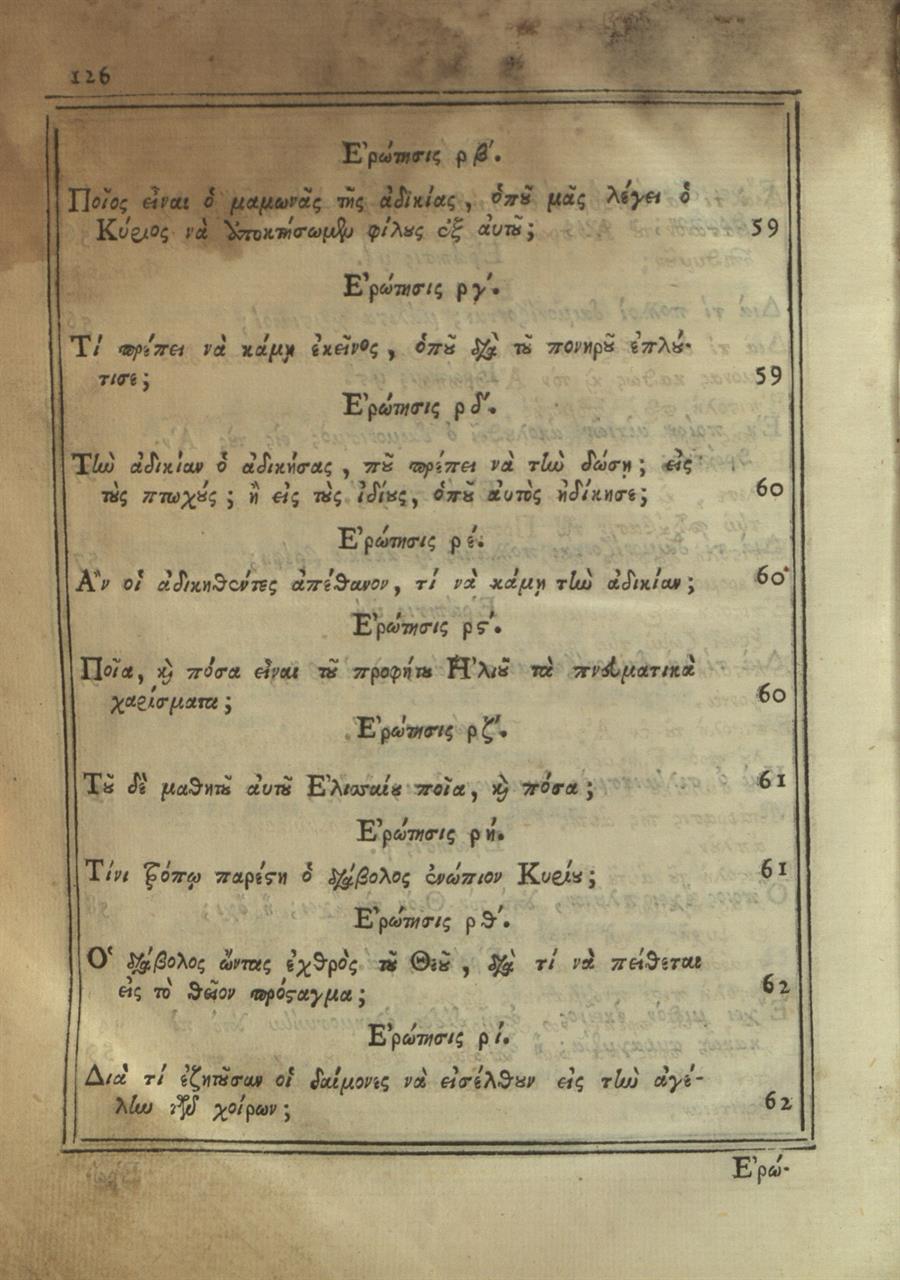 126
Ἐρώτησις ρβʹ.
Ποῖος εἶναι ὁ μαμωνᾶς τῆς ἀδικίας, ὁποῦ μᾶς λέγει ὁ
Κύριος νὰ ὑποκτήσωμεν φίλους ἐξ αὐτοῦ; 59
Ἐρώτησις ργʹ.
Τί πρέπει νὰ κάμῃ ἐκεῖνος, ὁποῦ διὰ τοῦ πονηροῦ ἐπλού-
τισε; 59
Ἐρώτησις ρδʹ.
Τὴν ἀδικίαν ὁ ἀδικήσας, ποῦ πρέπει νὰ τὴν δώσῃ; εἰς
τοὺς πτωχούς; ἢ εἰς τοὺς ἰδίους, ὁποῦ αὐτὸς ἠδίκησε; 60
Ἐρώτησις ρέ.
Ἂν οἱ ἀδικηθέντες ἀπέθανον, τί νὰ κάμῃ τὴν ἀδικίαν; 60
Ἐρώτησις ρϛʹ.
Ποῖα, καὶ πόσα εἶναι τοῦ προφήτου Ἠλιοῦ τὰ πνευματικὰ
χαρίσματα; 60
Ἐρώτησις ρζʹ.
Τοῦ δὲ μαθητοῦ αὐτοῦ Ἐλισσαίου ποῖα, καὶ πόσα; 61
Ἐρώτησις ρή.
Τίνι τρόπῳ παρέστη ὁ διάβολος ἐνώπιον Κυρίου; 61
Ἐρώτησις ρθʹ.
Ὁ διάβολος ὤντας ἐχθρὸς τοῦ Θεοῦ, διὰ τί νὰ πείθεται
εἰς τὸ θεῖον πρόσταγμα; 62
Ἐρώτησις ρί.
Διὰ τί ἐζητοῦσαν οἱ δαίμονες νὰ εἰσέλθουν εἰς τὴν ἀγέ-
λην τῶν χοίρων; 62
Ἐρώ-